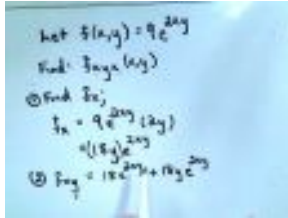 Let f(x,y) = 9e^{2xy}
Find: f_{xyx}(x,y)
① Find f_x;
f_x = 9e^{2xy} (2y)
=(18y)e^{2xy}
② f_{xy} = 18e^{2xy} + 18ye^{2xy}